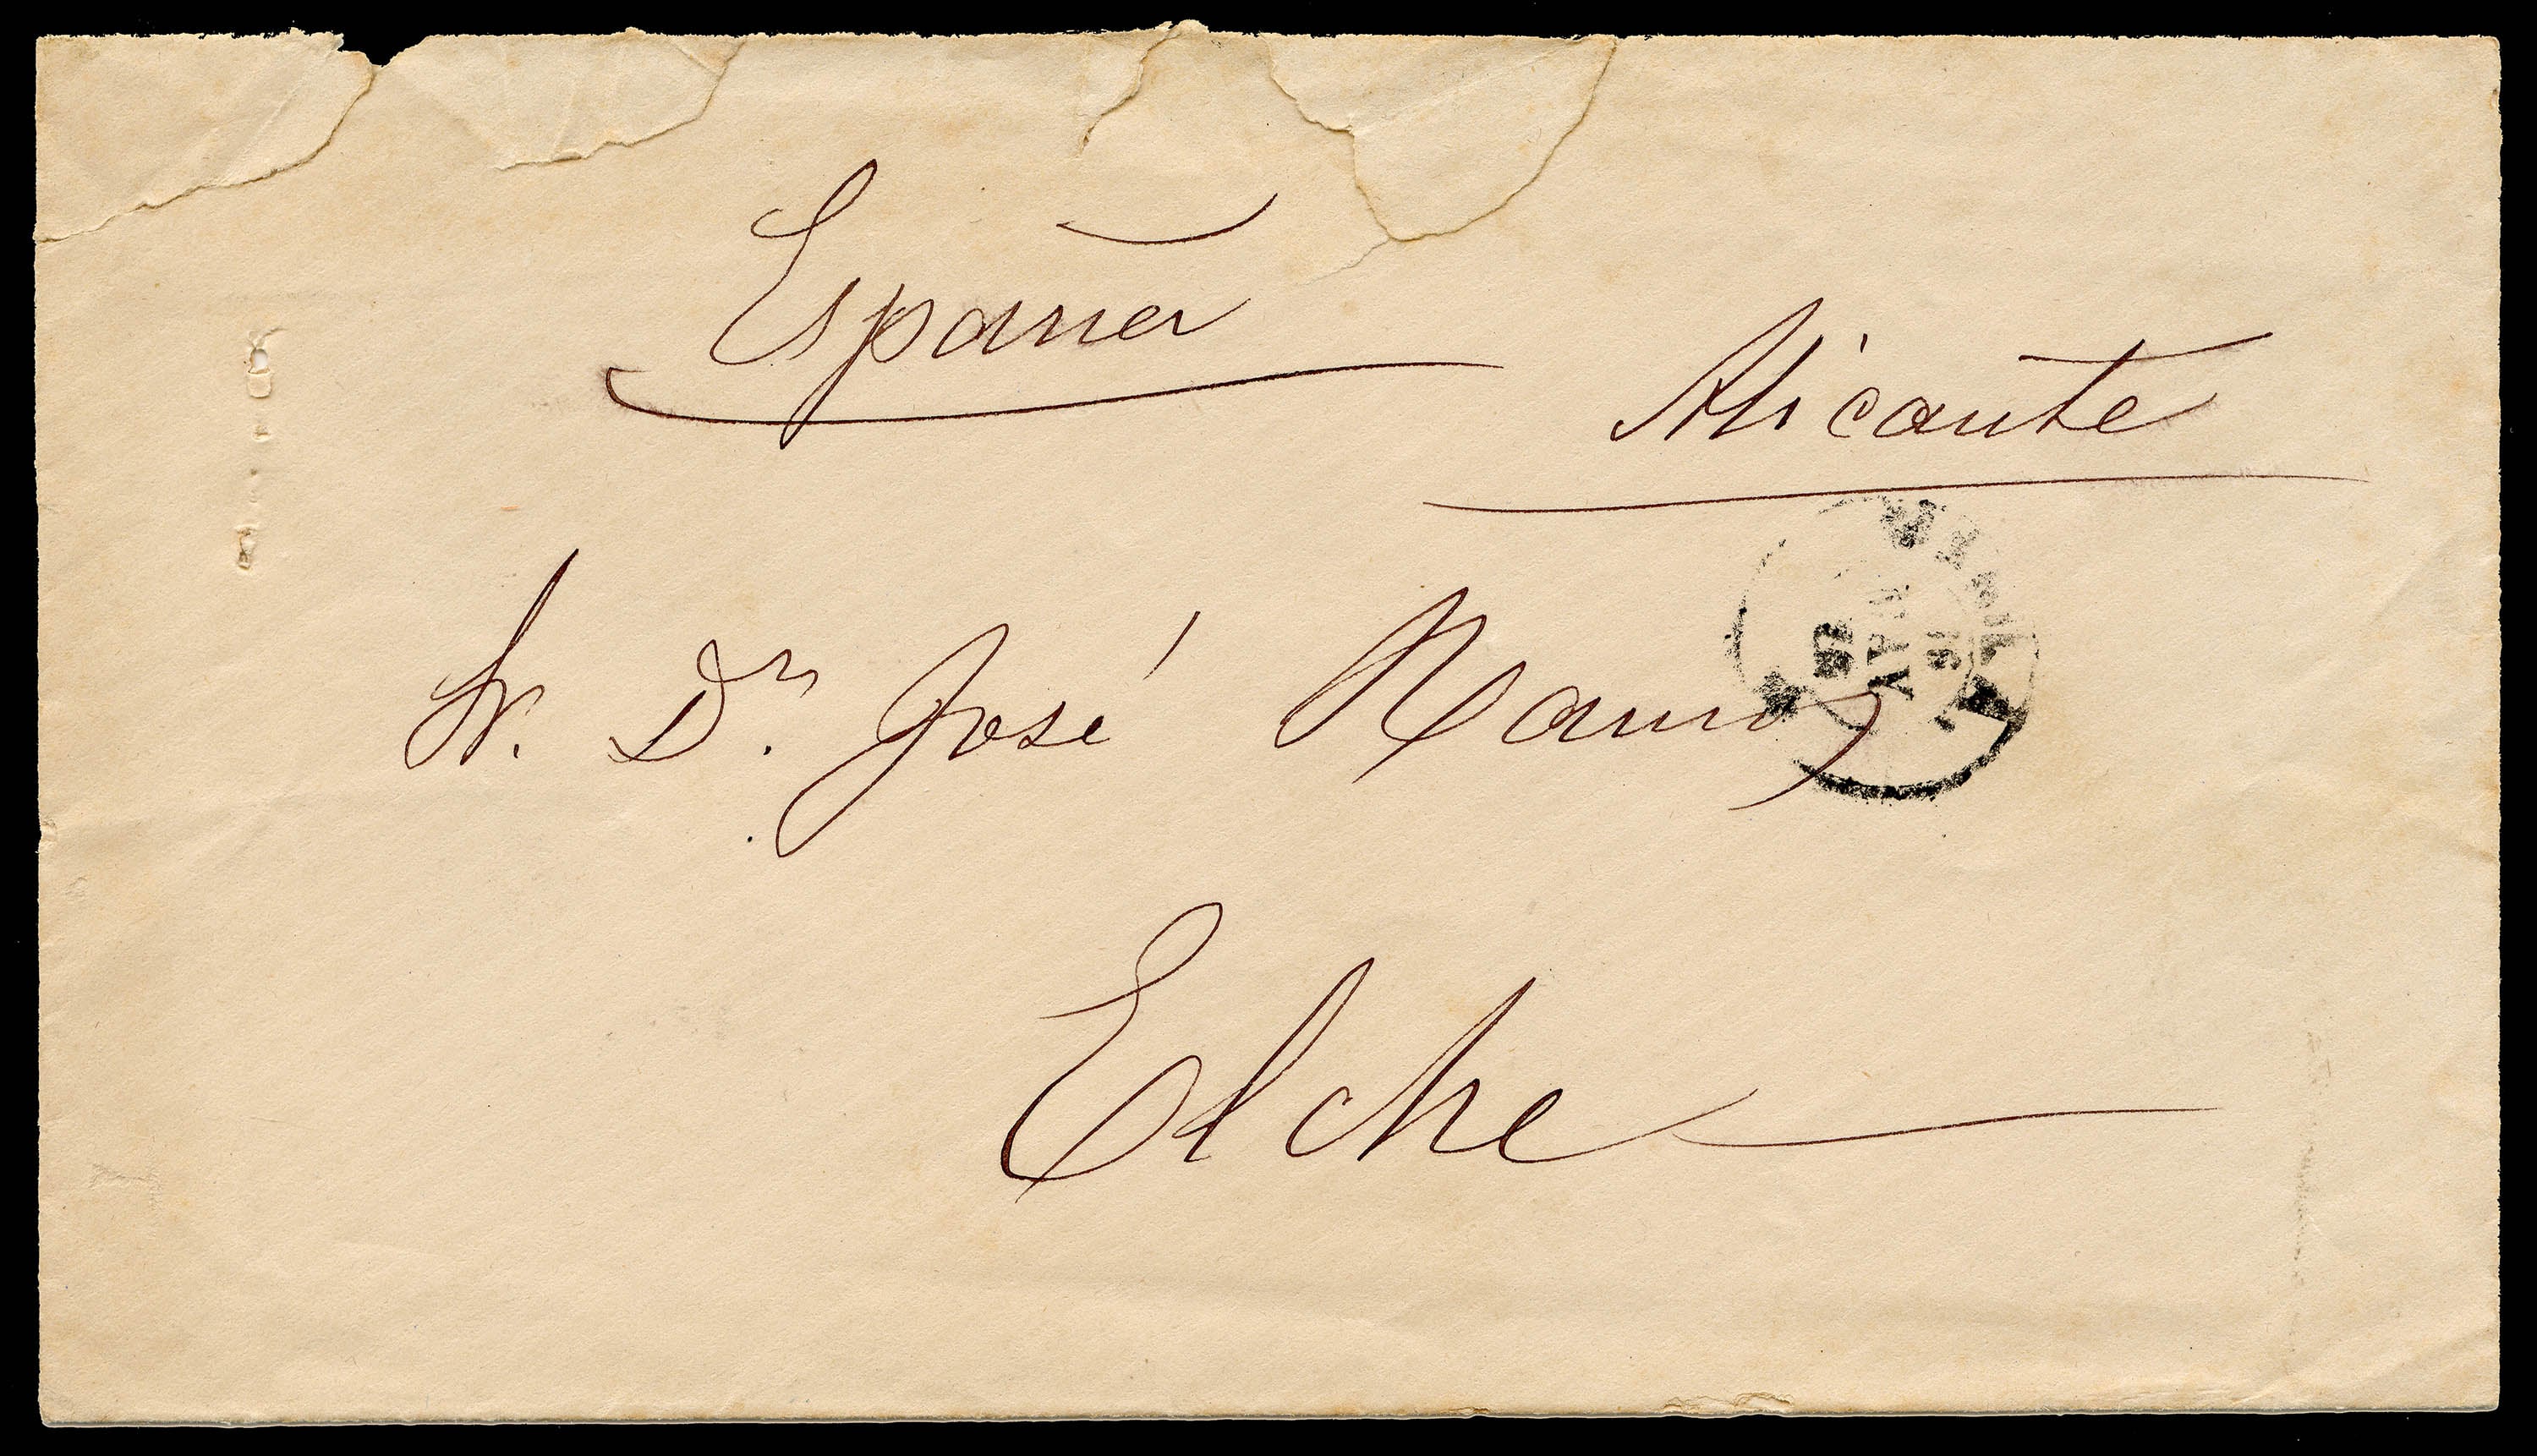 España
Alicante
Sr. Dn. José Ramos
Elche